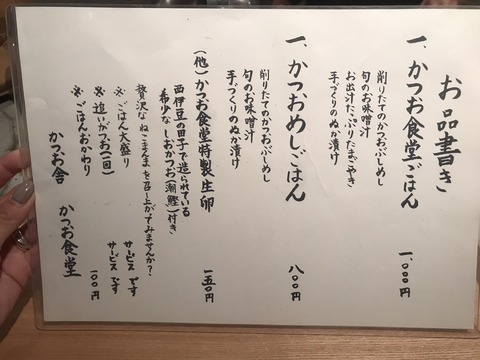 お品書き
一、かつお食堂ごはん 一、〇〇〇円
削りたてのかつおぶしめし
旬のお味噌汁
お出汁たっぷりたまごやき
手づくりのぬか漬け
一、かつおめしごはん 八〇〇円
削りたてのかつおぶしめし
旬のお味噌汁
手づくりのぬか漬け
(他)かつお食堂特製生卵 一五〇円
西伊豆の田子で造られている
希少なしおかつお(潮鰹)付き
贅沢なねこまんまを召し上がってみませんか？
※ごはん大盛り サービスです
※追いがつお(一回) サービスです
※ごはんおかわり 一〇〇円
かつお舎 かつお食堂